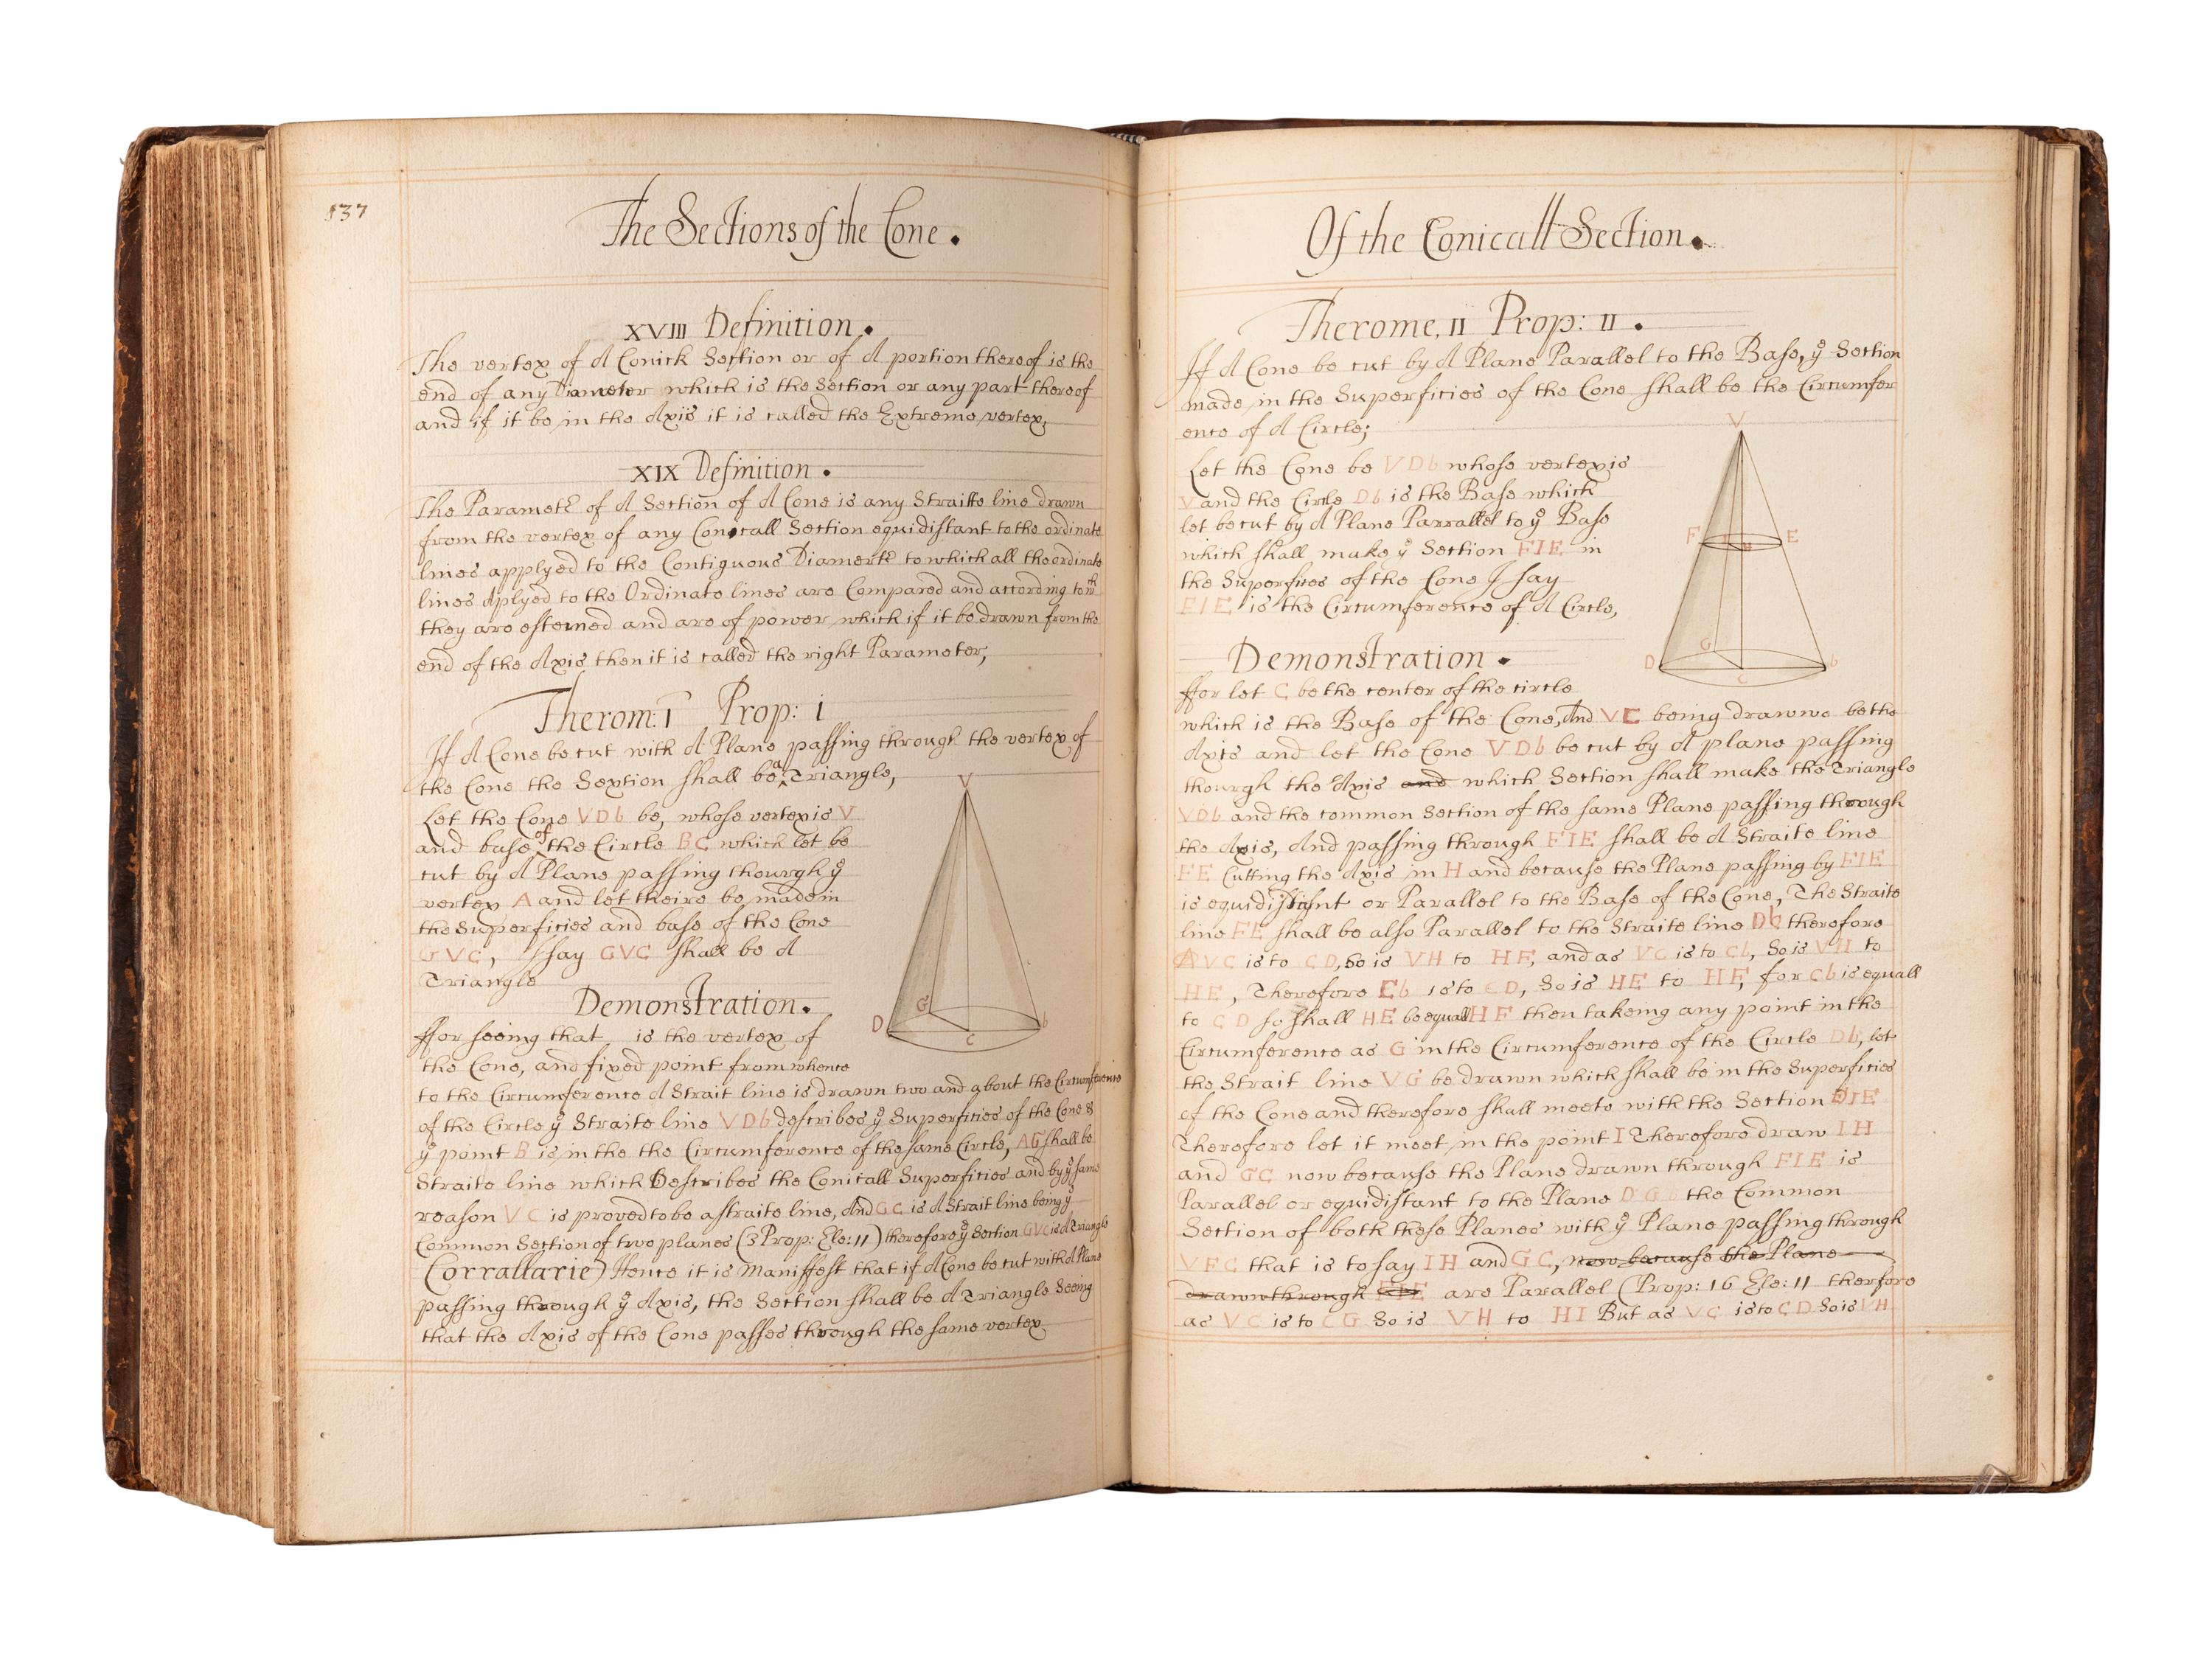 137
The Sections of the Cone.
XVIII Definition.
The vertex of A Conick Section or of A portion thereof is the
end of any Diameter which is the Section or any part thereof
and if it be in the Axis it is called the Extreme vertex;
XIX Definition.
The Paramet of A Section of A Cone is any Straitte line drawn
from the vertex of any Conicall Section equidistant to the ordinate
lines applyed to the Contiguous to which all the ordinate
lines Aplyed to the Ordinate lines are Compared and according to
they are esteined and are of power which if it be drawn from the
end of the Axis then it is called the right Parameter;
Therom: I Prop: I
If A Cone be cut with A Plane passing through the vertex of
the Cone the Sextion shall be a Triangle,
V
Let the Cone VDb be, whose vertex is V
and base of the Circle BC which let be
cut by A Plane passing thourgh ye
vertex A and let theire be made in
the Superficies and base of the Cone
GVC, I say GVC shall be A
Triangle
G
D b
C
Demonstration.
ffor seeing that is the vertex of
the Cone, and fixed point from whence
to the Circumference A Strait line is drawn two and about the Circumference
of the Circle ye Straite line VDb describes ye Superficies of the Cone &
ye point B is in the the Circumference of the same Circle, AG shall be
Straite line which Describes the Conicall Superficies and by ye same
reason VC is proved to be a straite line, And GC is A Strait line being ye
Common Section of two planes (3 Prop: Ele: 11) therefore ye Section GVC is A Triangle
Corrallarie) Hence it is Maniffest that if A Cone be cut with A Plane
passing through ye Axis, the Section shall be A Triangle Seeing
that the Axis of the Cone passes through the same vertex
Of the Conicall Section.
Therome, II Prop: II.
If A Cone be cut by A Plane Parallel to the Base, ye Section
made in the Superficies of the Cone shall be the Circumfer
ence of A Circle;
V
Let the Cone be VDb whose vertex is
V and the Circle Db is the Base which
let be cut by A Plane Parrallel to ye Base
which shall make ye Section FIE in
the Superfices of the Cone I say
FIE is the Circumference of A Circle,
F I H E
G
D b
C
Demonstration.
ffor let C be the center of the circle
which is the Base of the Cone, And VC being drawne be the
Axis and let the Cone VDb be cut by A plane passing
thourgh the Axis and which Section shall make the Triangle
VDb and the common Section of the same Plane passing through
the Axis, And passing through FIE shall be A Straite line
FE Cutting the Axis in H and because the Plane passing by FIE
is equidistant or Parallel to the Base of the Cone, The Straite
line FE shall be also Parallel to the Straite line Db therefore
VC is to CD, So is VH to HF, and as VC is to Cb, So is VH to
HE, Therefore Cb is to CD, So is HE to HF, for Cb is equall
to CD so shall HE be equall HF then takeing any point in the
Circumference as G in the Circumference of the Circle Db, let
the Strait line VG be drawn which shall be in the Superficies
of the Cone and therefore shall meete with the Section
Therefore let it meet in the point I Therefore draw IH
and GC now because the Plane drawn through FIE is
Parallel or equidistant to the Plane DGb the Common
Section of both these Planes with ye Plane passing through
VFC that is to say IH and GC, now because the Plane
drawn through FIE are Parallel (Prop: 16 Ele: 11 therfore
as VC is to CG So is VH to HI But as VC is to CD So is VH